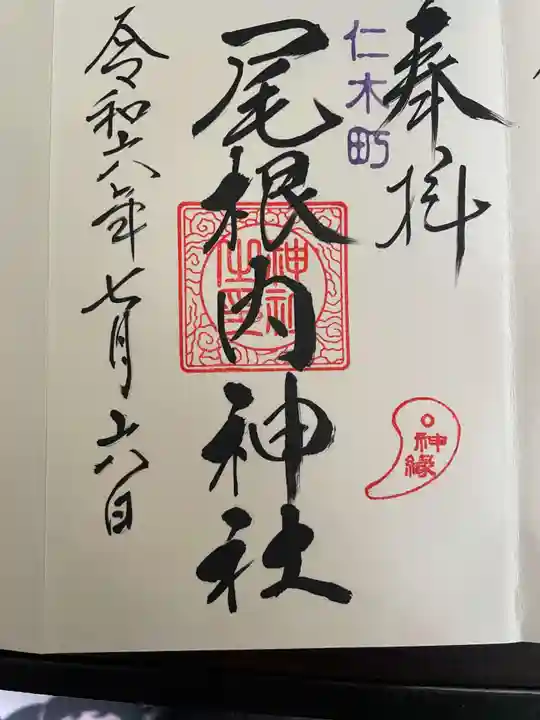 奉拝
仁木町
尾根内神社
神社
之印
神縁
令和六年七月六日